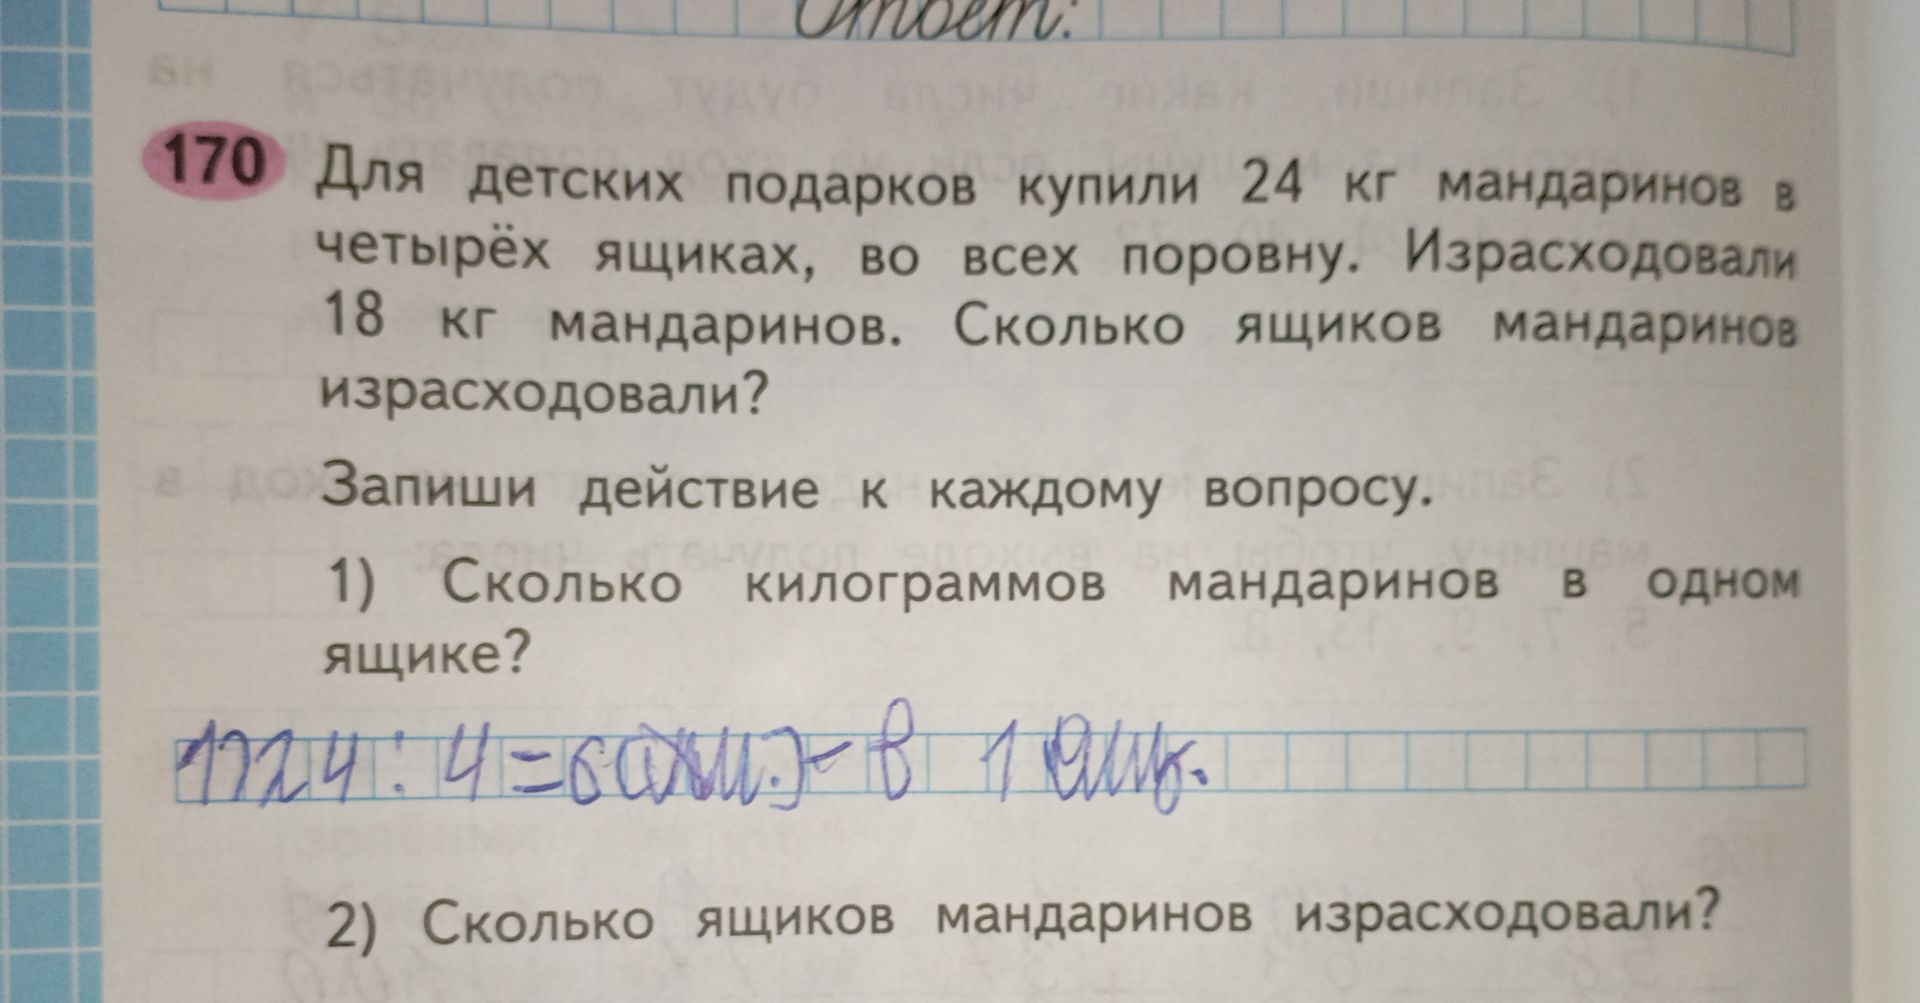 Ответ:
170 Для детских подарков купили 24 кг мандаринов в
четырёх ящиках, во всех поровну. Израсходовали
18 кг мандаринов. Сколько ящиков мандаринов
израсходовали?
Запиши действие к каждому вопросу.
1) Сколько килограммов мандаринов в одном
ящике?
1)24:4=6 - в 1 ящ.
2) Сколько ящиков мандаринов израсходовали?